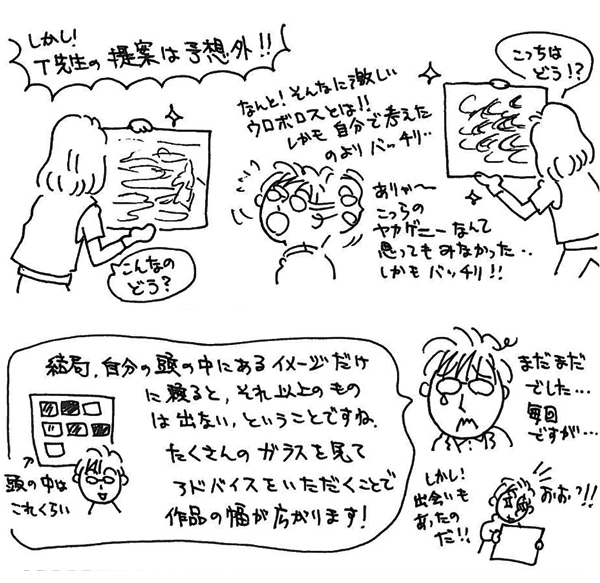 しかし!
T先生の提案は予想外!!
こんなの
どう?
なんと!そんなに激しい
ウロボロスとは!!
しかも自分で考えた
のよりバッチリ‥
こっちは
どう!?
ありゃ〜
こっちの
ヤカゲニーなんて
思ってもみなかった‥
しかもバッチリ!!
結局、自分の頭の中にあるイメージだけ
に頼ると、それ以上のもの
は出ない、ということですね。
たくさんのガラスを見て
アドバイスをいただくことで
作品の幅が広がります!
頭の中は
これくらい
まだまだ
でした…
毎回
ですが…
しかし!
出会いも
あったの
だ!!
おおっ!!